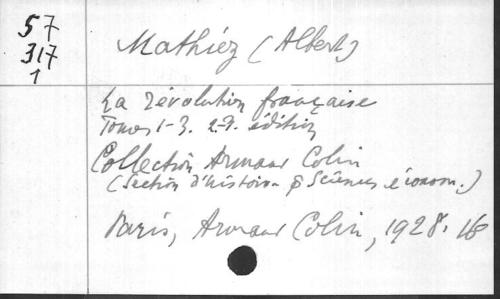 57
317
1
Mathiéz (Albert)
La révolution française
Tomes 1-3. édition
Collection Armand Colin
(Section d'histoire & Sciences économ.)
Paris, Armand Colin, 1928. 16